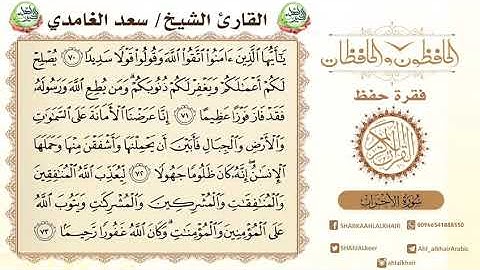 القارئ الشيخ/ سعد الغامدي
يَـٰٓأَيُّهَا ٱلَّذِينَ ءَامَنُوا۟ ٱتَّقُوا۟ ٱللَّهَ وَقُولُوا۟ قَوْلًا سَدِيدًا ٧٠ يُصْلِحْ
لَكُمْ أَعْمَـٰلَكُمْ وَيَغْفِرْ لَكُمْ ذُنُوبَكُمْ ۗ وَمَن يُطِعِ ٱللَّهَ وَرَسُولَهُۥ
فَقَدْ فَازَ فَوْزًا عَظِيمًا ٧١ إِنَّا عَرَضْنَا ٱلْأَمَانَةَ عَلَى ٱلسَّمَـٰوَٰتِ
وَٱلْأَرْضِ وَٱلْجِبَالِ فَأَبَيْنَ أَن يَحْمِلْنَهَا وَأَشْفَقْنَ مِنْهَا وَحَمَلَهَا
ٱلْإِنسَـٰنُ ۖ إِنَّهُۥ كَانَ ظَلُومًا جَهُولًا ٧٢ لِّيُعَذِّبَ ٱللَّهُ ٱلْمُنَـٰفِقِينَ
وَٱلْمُنَـٰفِقَـٰتِ وَٱلْمُشْرِكِينَ وَٱلْمُشْرِكَـٰتِ وَيَتُوبَ ٱللَّهُ
عَلَى ٱلْمُؤْمِنِينَ وَٱلْمُؤْمِنَـٰتِ ۗ وَكَانَ ٱللَّهُ غَفُورًا رَّحِيمًا ٧٣
الحافظون والحافظات
فقرة حفظ
القرآن الكريم
سورة الأحزاب
SHABKAAHLALKHAIR
00966541888550
Ahl_alkhairArabic
ahlalkhair